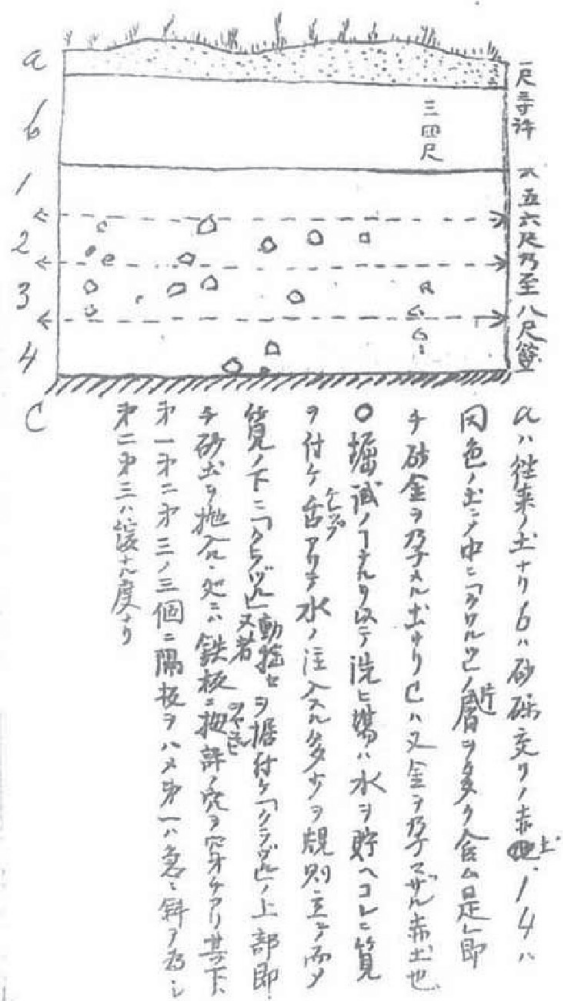 a
b
1
2
3
4
C
一尺二寸許
三四尺
五六尺乃至八尺
aハ往来ノ土ナリ bハ砂礫交リノ赤土 14ハ
同色ノ土ノ中ニ「クワルツ」ノ屑片ヲ多ク含ム是レ即
チ砂金ヲ孕メル土ナリ Cハ又金ヲ孕マザル赤土也
○堀試ノ 以テ洗ヒ場ハ水ヲ貯ヘコレニ筧
ヲ付ケ舌アリテ水ノ注入スル多少ヲ規則立テ而メ
筧ノ下ニ「クラヅル」動揺セ 又者 ヲ据付ケ「クラヅル」ノ上部即
チ砂土ヲ抛入ル処ニハ鉄板ニ 許ノ穴ヲ穿チアリ其下ハ
第一第二第三ノ三個ニ隔板ヲハメ第一ハ急ニ斜ヲ為シ
第二第三ハ 度ナリ